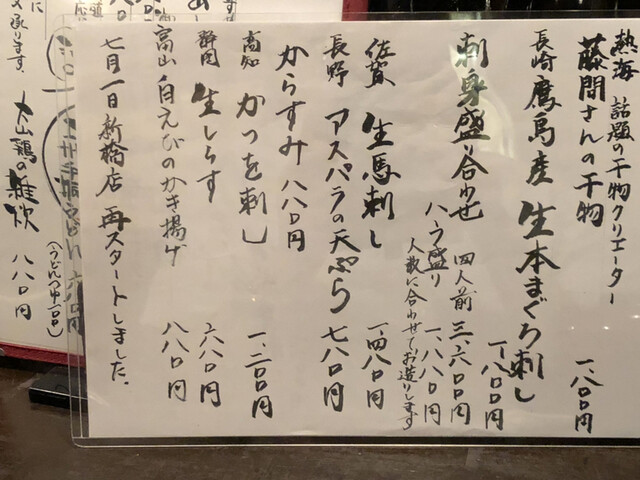 熱海 話題の干物クリエーター
藤間さんの干物 一、八〇〇円
長崎鷹島産 生本まぐろ刺し 一、八〇〇円
刺身盛り合わせ 四人前 三、六〇〇円
ハーフ盛り 一、八八〇円
人数に合わせてお造りします
佐賀 生馬刺し 一、四八〇円
長野 アスパラの天ぷら 七八〇円
からすみ 八八〇円
高知 かつを刺し 一、二〇〇円
静岡 生しらす 六八〇円
富山 白えびのかき揚げ 八八〇円
七月一日新橋店 再スタートしました。
大山鶏の雑炊 八八〇円